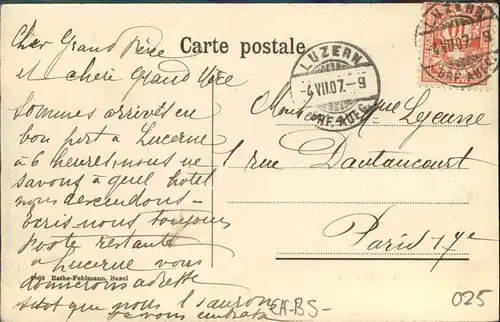 Carte postale
Cher Grand Père
et chère Grand Mère
Sommes arrivés en
bon port à Lucerne
à 6 heures, nous ne
savons à quel hotel
nous descendons -
écris-nous toujours
Poste restante
à Lucerne vous
donnerons adresse
sitôt que nous l'aurons
LUZERN
-4.VII.07.-9
LUZERN
4.VII.07.-9
10
Lejeune
1 rue Dautancourt
Paris 17e
Rathe-Fehlmann, Basel
025